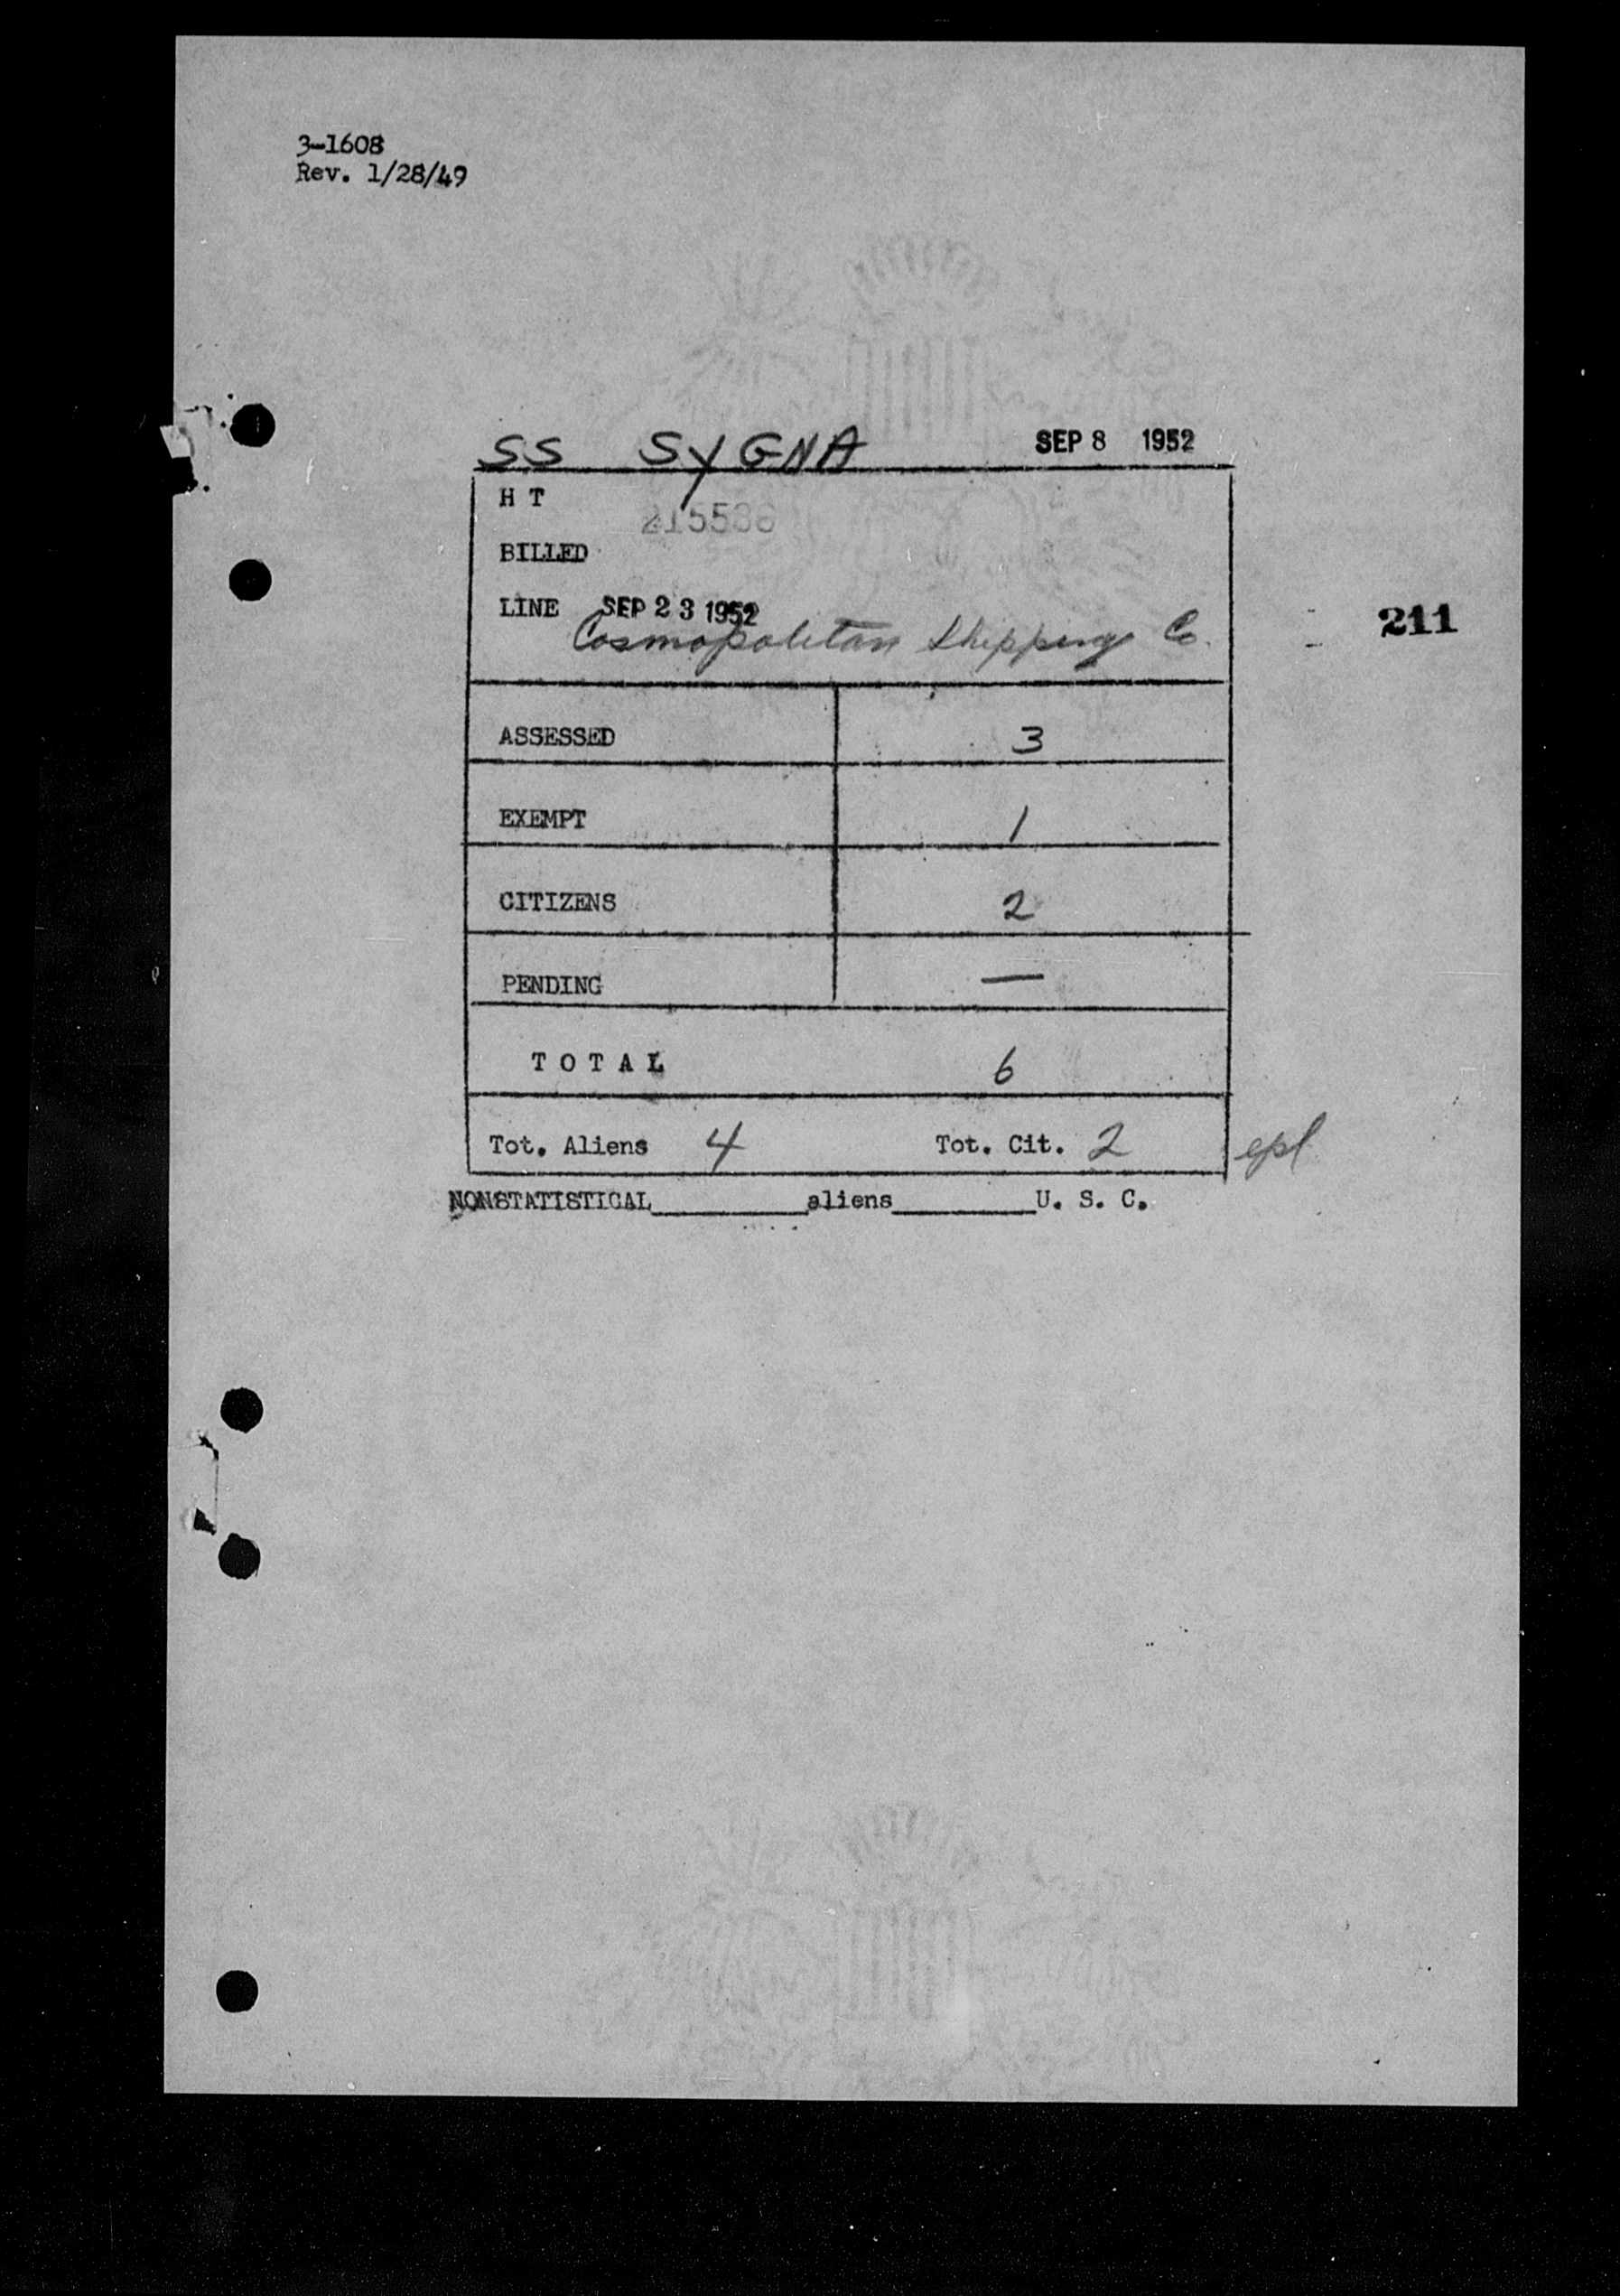 3-1608
Rev. 1/28/49
SS SYGNA SEP 8 1952
H T
BILLED
LINE SEP 23 1952
Cosmopolitan Shipping Co.
211
ASSESSED 3
EXEMPT 1
CITIZENS 2
PENDING —
T O T A L 6
Tot. Aliens 4 Tot. Cit. 2
NONSTATISTICAL__________aliens__________U. S. C.